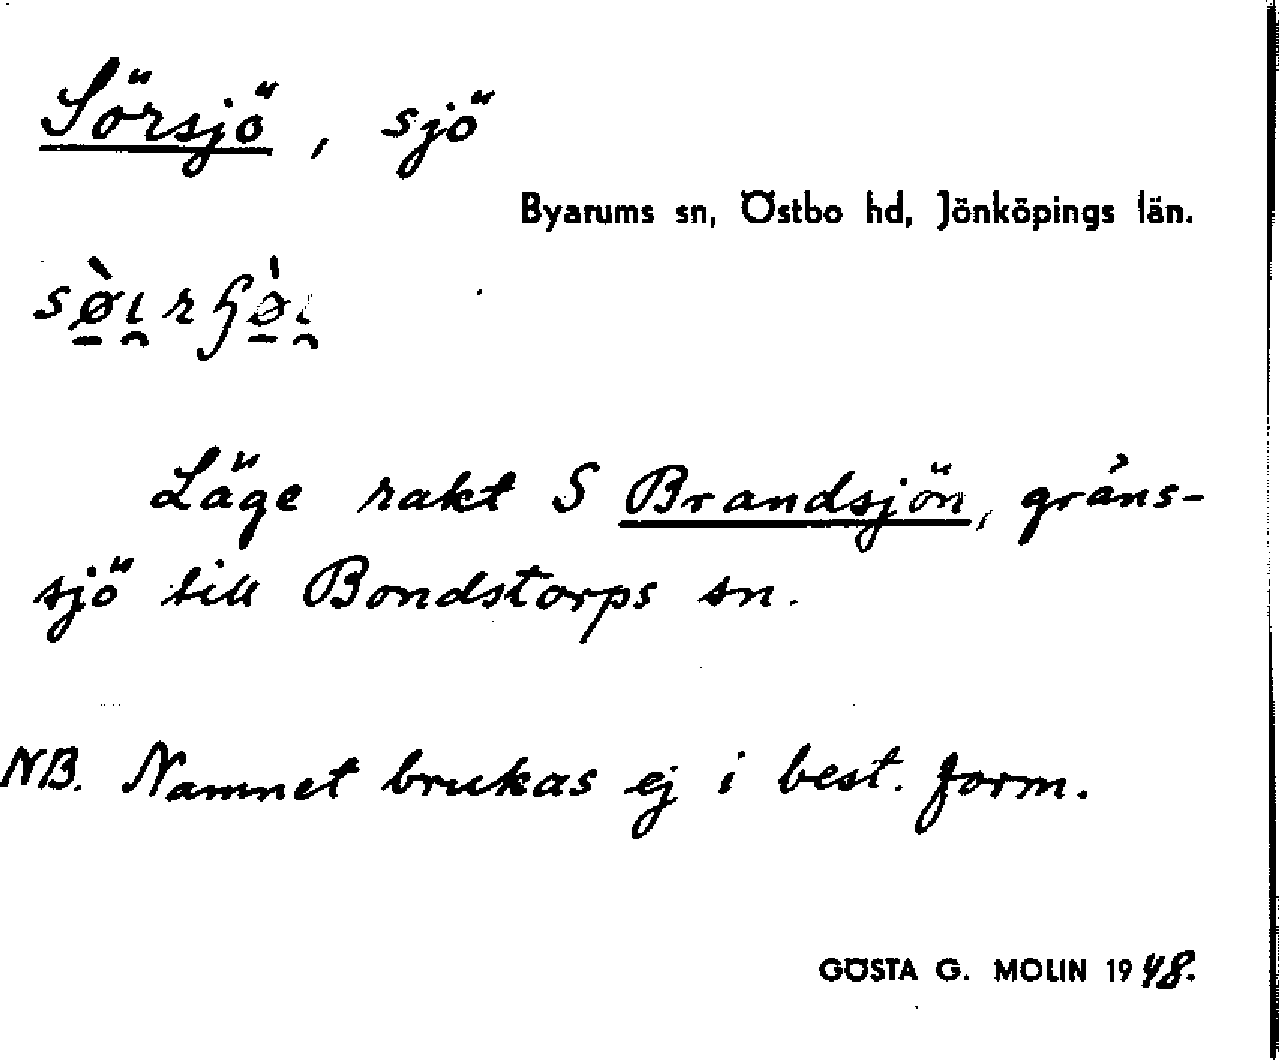 Sörsjö, sjö
Byarums sn, Östbo hd, Jönköpings län.
Läge rakt S Brandsjön, gräns-
sjö till Bondstorps sn.
NB. Namnet brukas ej i best. form.
GÖSTA G. MOLIN 1948.